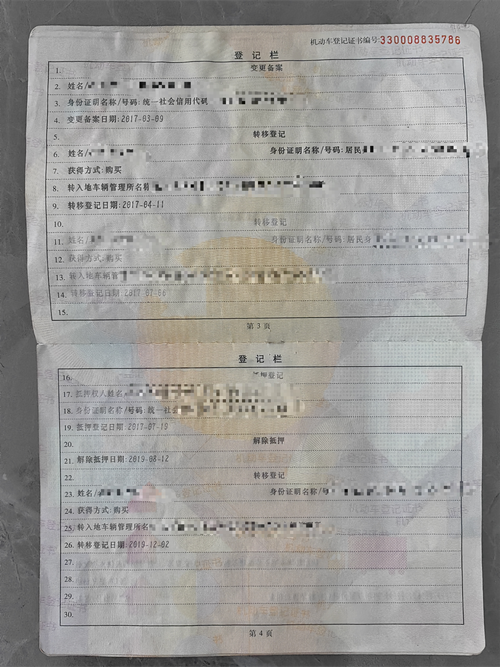 机动车登记证书编号:330008835786
登 记 栏
1. 变更备案
2. 姓名/
3. 身份证明名称/号码:统一社会信用代码
4. 变更备案日期:2017-03-09
5. 转移登记
6. 姓名/ 身份证明名称/号码:居民
7. 获得方式:购买
8. 转入地车辆管理所名称
9. 转移登记日期:2017-04-11
10. 转移登记
11. 姓名/ 身份证明名称/号码:居民身
12. 获得方式:购买
13. 转入地车辆管
14. 转移登记日期:2017-07-06
15.
第 3 页
登 记 栏
16. 抵押登记
17. 抵押权人姓名
18. 身份证明名称/号码:统一社会
19. 抵押登记日期:2017-07-19
20. 解除抵押
21. 解除抵押日期:2019-08-12
22. 转移登记
23. 姓名/ 身份证明名称/号
24. 获得方式:购买
25. 转入地车辆管理所名
26. 转移登记日期:2019-12-02
27.
28.
29.
30.
第 4 页